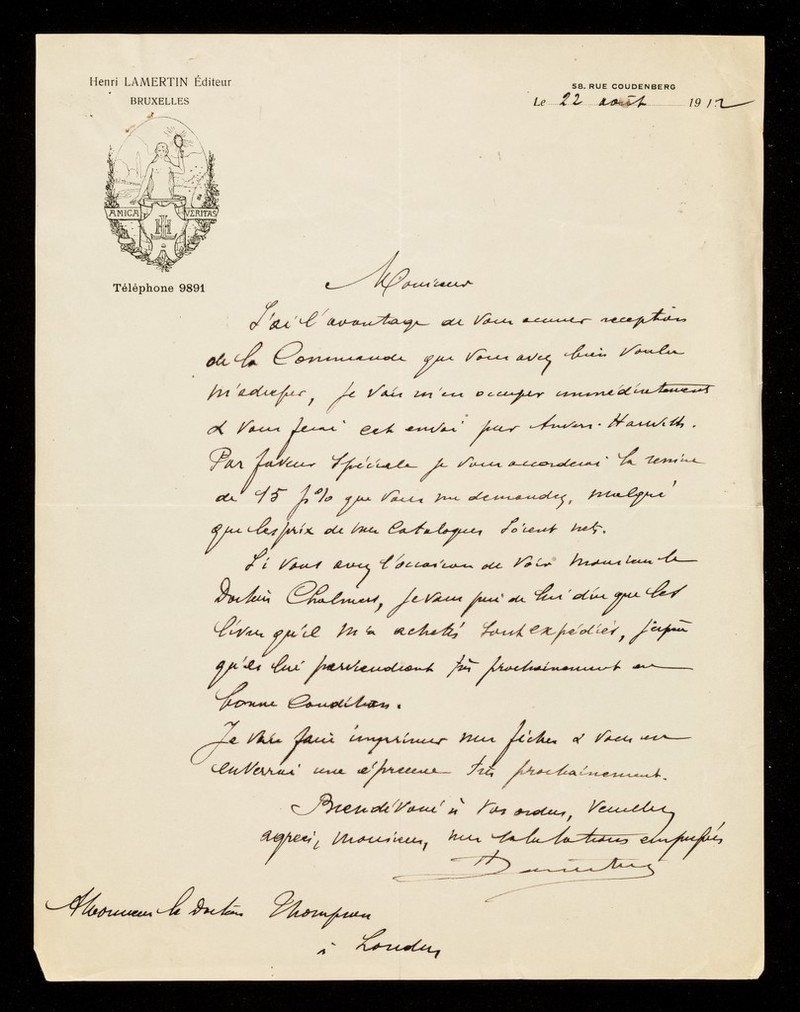 Henri LAMERTIN Éditeur
BRUXELLES
58. RUE COUDENBERG
Le 22 août 1912
AMICA VERITAS
HL
Téléphone 9891
Monsieur
J'ai l'avantage de vous accuser reception
de la Commande que vous avez bien voulu
m'adresser, je vais m'en occuper immédiatement
& vous ferai cet envoi par Anvers-Harwich.
Par faveur spéciale je vous accorderai la remise
de 15 p% que vous me demandez, malgré
que les prix de mes Catalogues soient nets.
Si vous avez l'occasion de voir Monsieur le
Docteur Chalmers, je vous prie de lui dire que les
livres qu'il m'a achetés sont expédiés, j'espère
qu'ils lui parviendront très prochainement en
bonne Condition.
Je vais faire imprimer mes fiches & vous en
enverrai une épreuve très prochainement.
Bien dévoué à vos ordres, Veuillez
agréer, Monsieur, mes salutations empressées
Monsieur le Docteur Thompson
à Londres